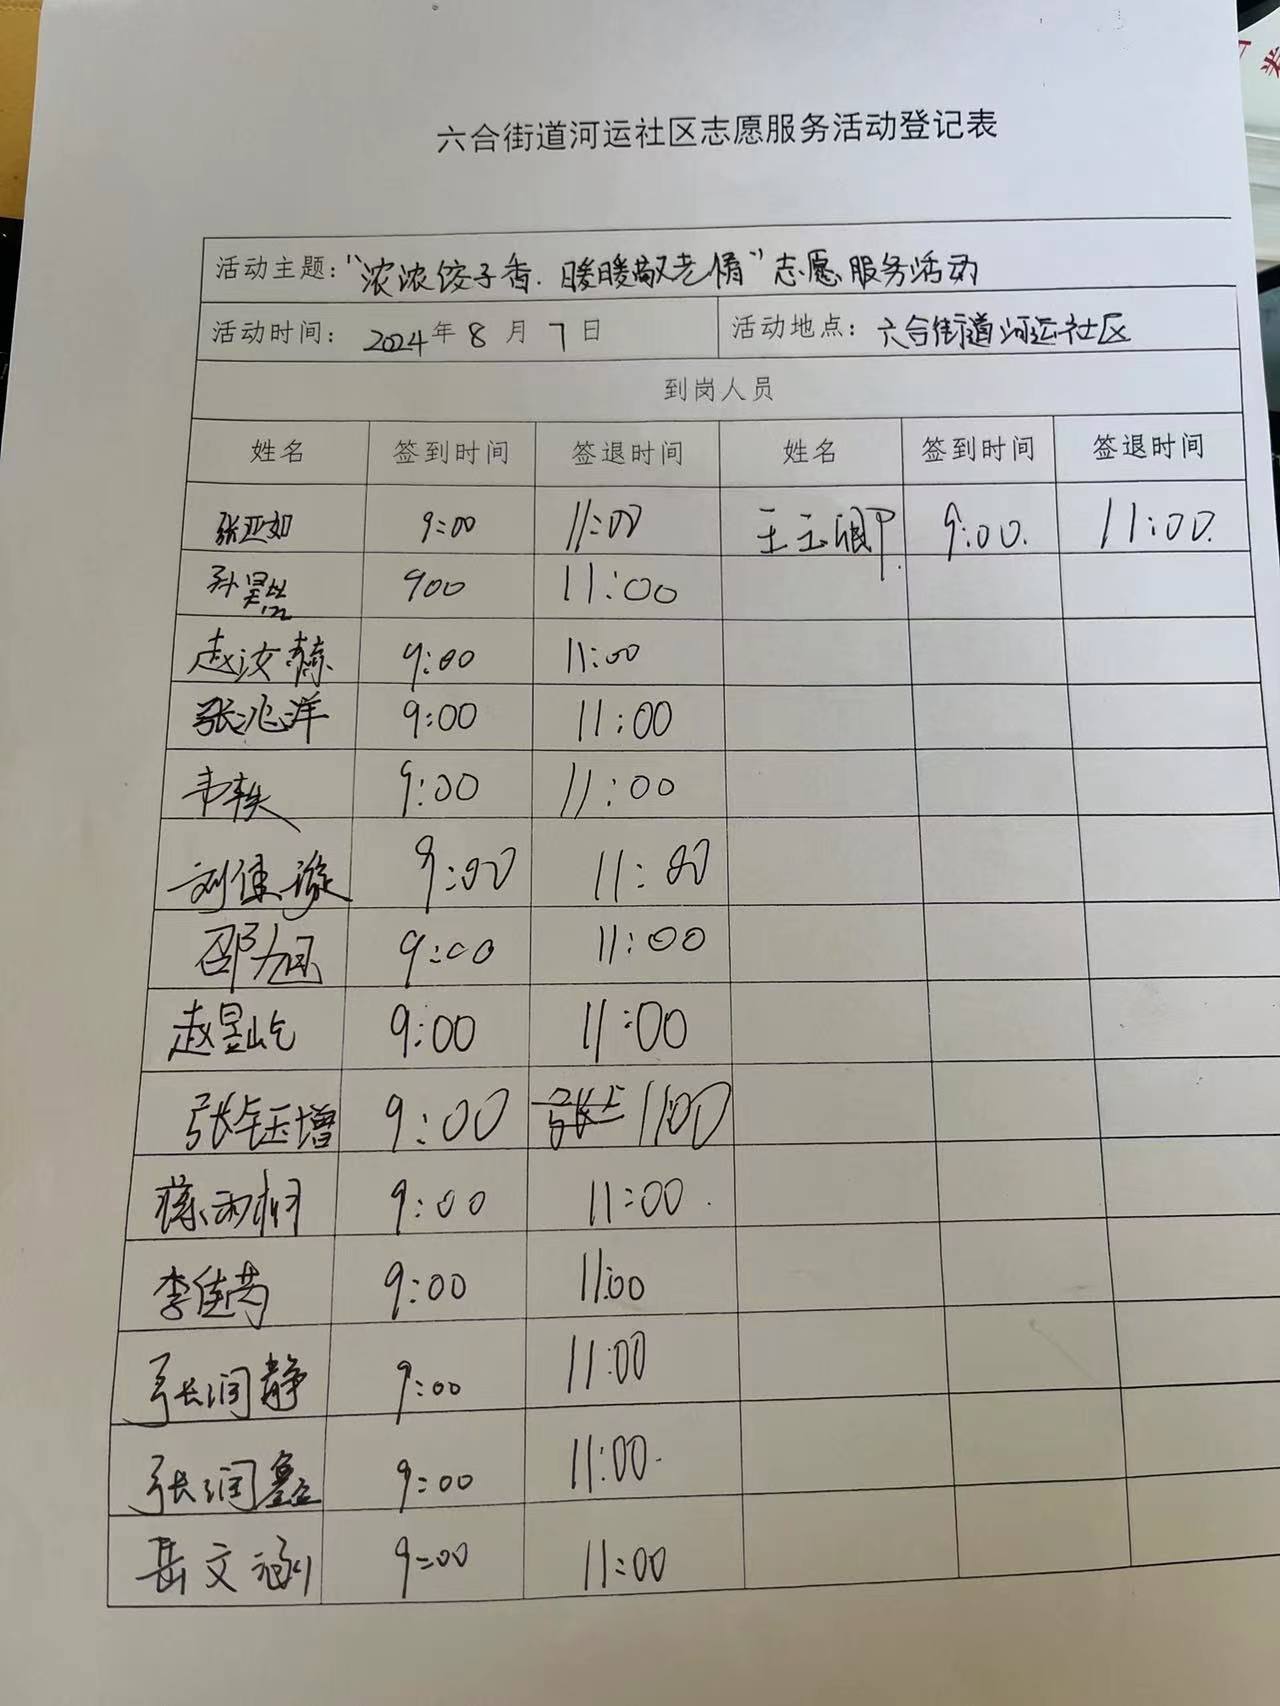 六合街道河运社区志愿服务活动登记表
活动主题：“浓浓饺子香.暖暖敬老情”志愿服务活动
活动时间：2024年8月7日 活动地点：六合街道河运社区
到岗人员
姓名 签到时间 签退时间 姓名 签到时间 签退时间
张亚如 9:00 11:00 王玉 9:00. 11:00.
孙昊 900 11:00
赵汝 9:00 11:00
张兆洋 9:00 11:00
韦轶 9:00 11:00
刘佳漩 9:00 11:00
邵旭 9:00 11:00
赵昱屹 9:00 11:00
张钰增 9:00 11:00
蒋 9:00 11:00.
李佳芮 9:00 11:00
张润静 9:00 11:00
张润鑫 9:00 11:00.
岳文涵 9:00 11:00